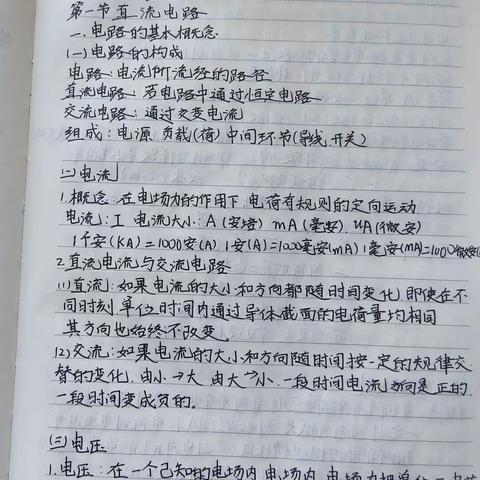 第一节直流电路
一、电路的基本概念
(一)电路的构成
电路:电流所流经的路径
直流电路:若电路中通过恒定电路
交流电路:通过交变电流
组成:电源 负载(荷) 中间环节(导线,开关)
(二)电流
1.概念:在电场力的作用下,电荷有规则的定向运动
电流:I 电流大小:A(安培) mA(毫安) uA(微安)
1千安(KA)=1000安(A) 1安(A)=1000毫安(mA) 1毫安(MA)=1000微安
2.直流电流与交流电路
(1)直流:如果电流的大小和方向都随时间变化,即使在不
同时刻单位时间内通过导体截面的电荷量均相同
其方向也始终不改变。
(2)交流:如果电流的大小和方向随时间按一定的规律交
替的变化,由小→大,由大→小,一段时间电流方向是正的,
一段时间变成负的。
(三)电压
1.电压:在一个已知的电场内,电场内,电场力把单位正电荷